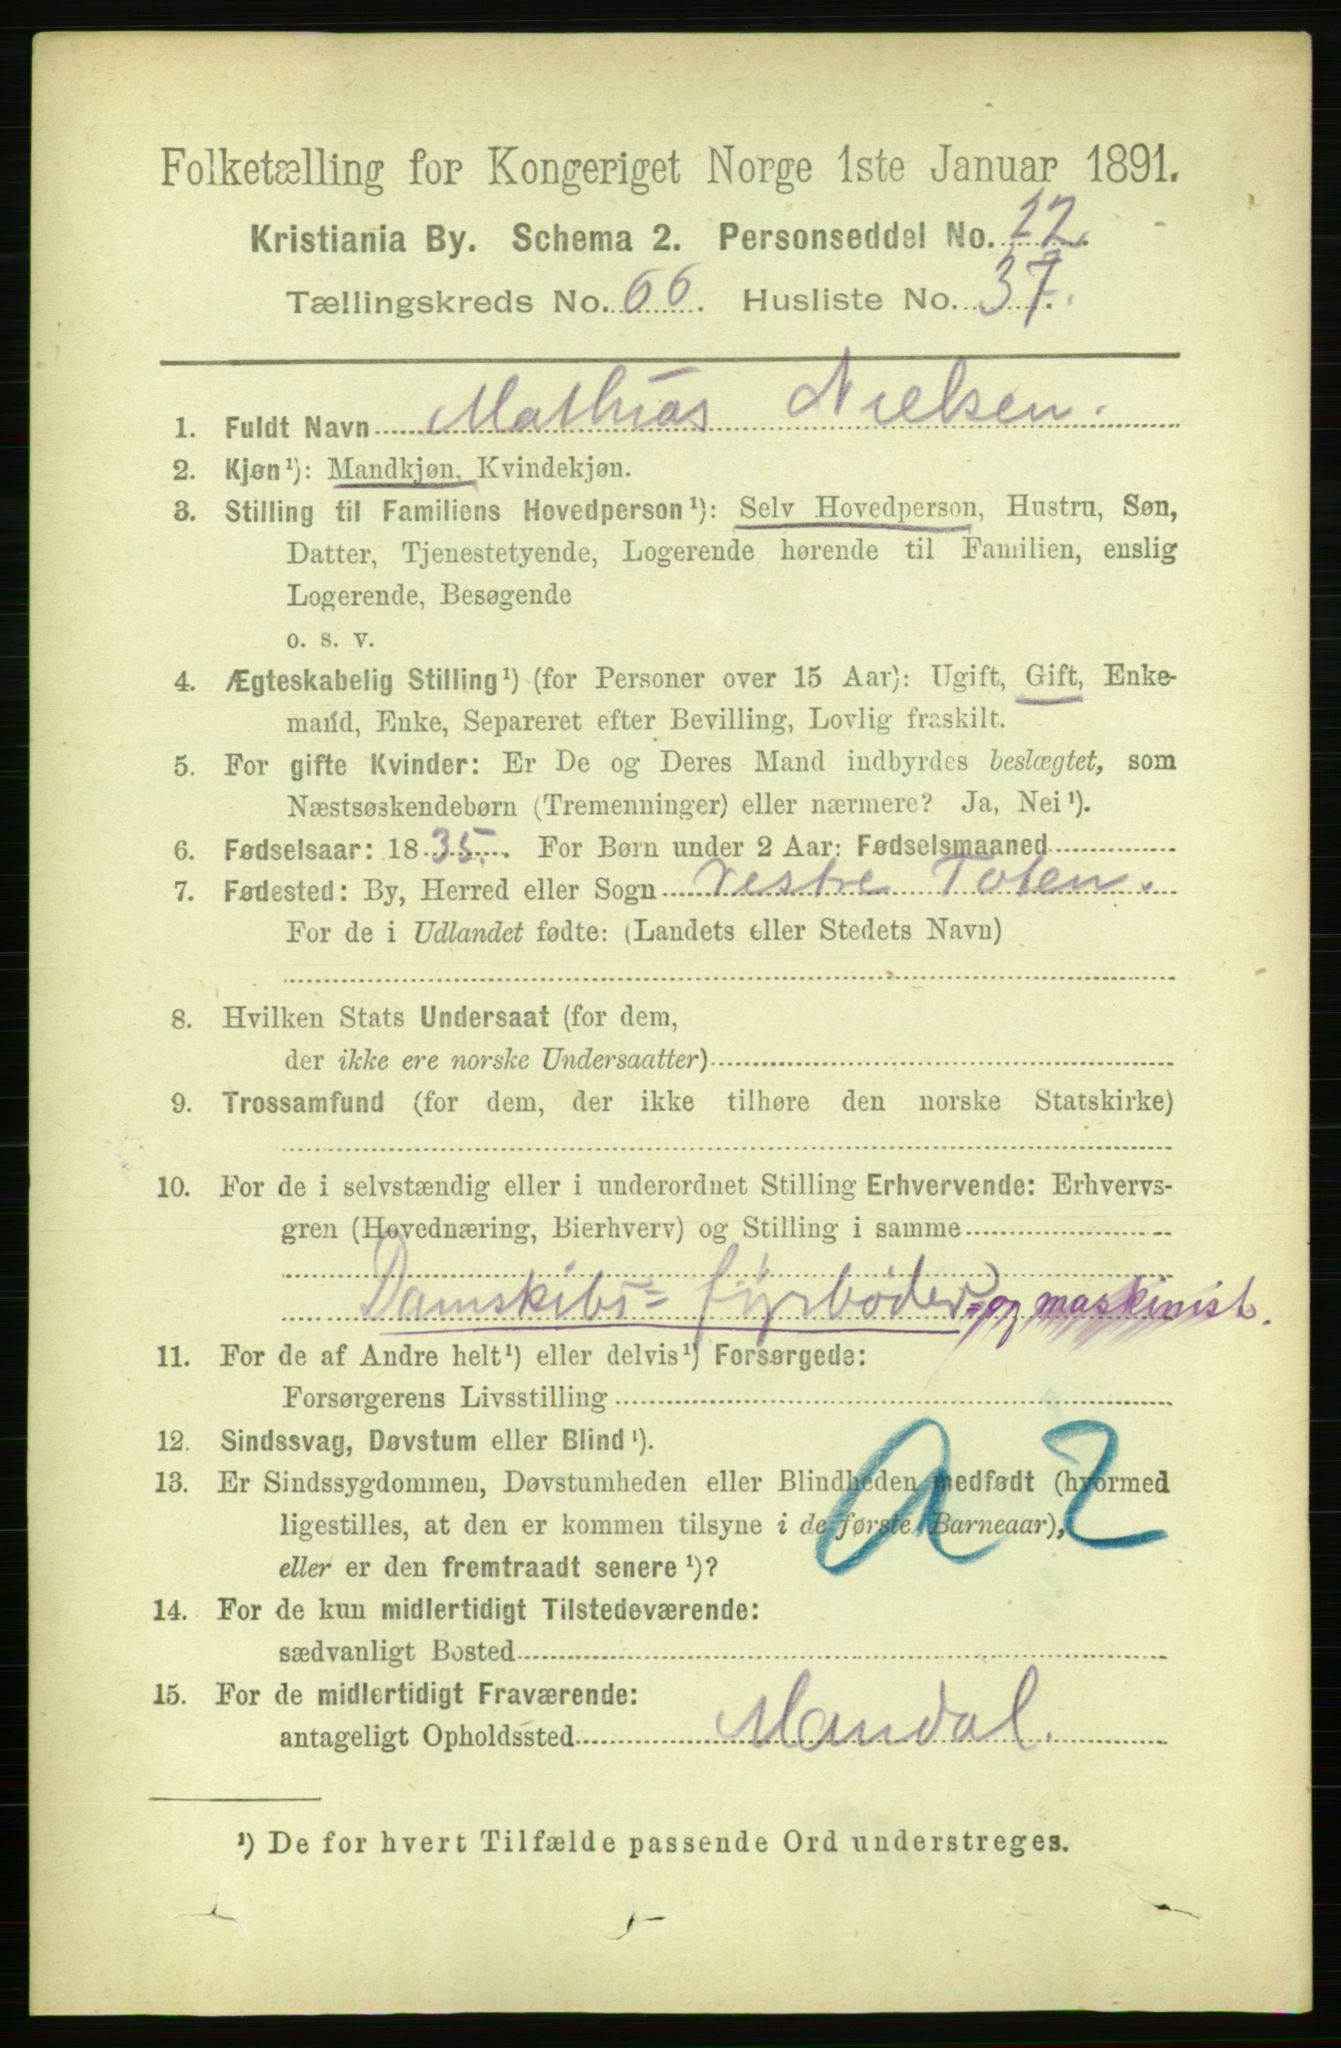 Folketælling for Kongeriget Norge 1ste Januar 1891.
Kristiania By. Schema 2. Personseddel No. 12.
Tællingskreds No. 66. Husliste No. 37.
1. Fuldt Navn Mathias Nielsen.
2. Kjøn¹): Mandkjøn, Kvindekjøn.
3. Stilling til Familiens Hovedperson¹): Selv Hovedperson, Hustru, Søn,
Datter, Tjenestetyende, Logerende hørende til Familien, enslig
Logerende, Besøgende
o. s. v.
4. Ægteskabelig Stilling¹) (for Personer over 15 Aar): Ugift, Gift, Enke-
mand, Enke, Separeret efter Bevilling, Lovlig fraskilt.
5. For gifte Kvinder: Er De og Deres Mand indbyrdes beslægtet, som
Næstsøskendebørn (Tremenninger) eller nærmere? Ja, Nei¹).
6. Fødselsaar: 1835. For Børn under 2 Aar: Fødselsmaaned
7. Fødested: By, Herred eller Sogn Vestre Toten.
For de i Udlandet fødte: (Landets eller Stedets Navn)
8. Hvilken Stats Undersaat (for dem,
der ikke ere norske Undersaatter)
9. Trossamfund (for dem, der ikke tilhøre den norske Statskirke)
10. For de i selvstændig eller i underordnet Stilling Erhvervende: Erhvervs-
gren (Hovednæring, Bierhverv) og Stilling i samme
Damskibs= fyrbøder= og maskinist.
11. For de af Andre helt¹) eller delvis¹) Forsørgede:
Forsørgerens Livsstilling
12. Sindssvag, Døvstum eller Blind¹).
13. Er Sindssygdommen, Døvstumheden eller Blindheden medfødt (hvormed
ligestilles, at den er kommen tilsyne i de første Barneaar),
eller er den fremtraadt senere¹)?
a 2
14. For de kun midlertidigt Tilstedeværende:
sædvanligt Bosted
15. For de midlertidigt Fraværende:
antageligt Opholdssted Mandal.
¹) De for hvert Tilfælde passende Ord understreges.